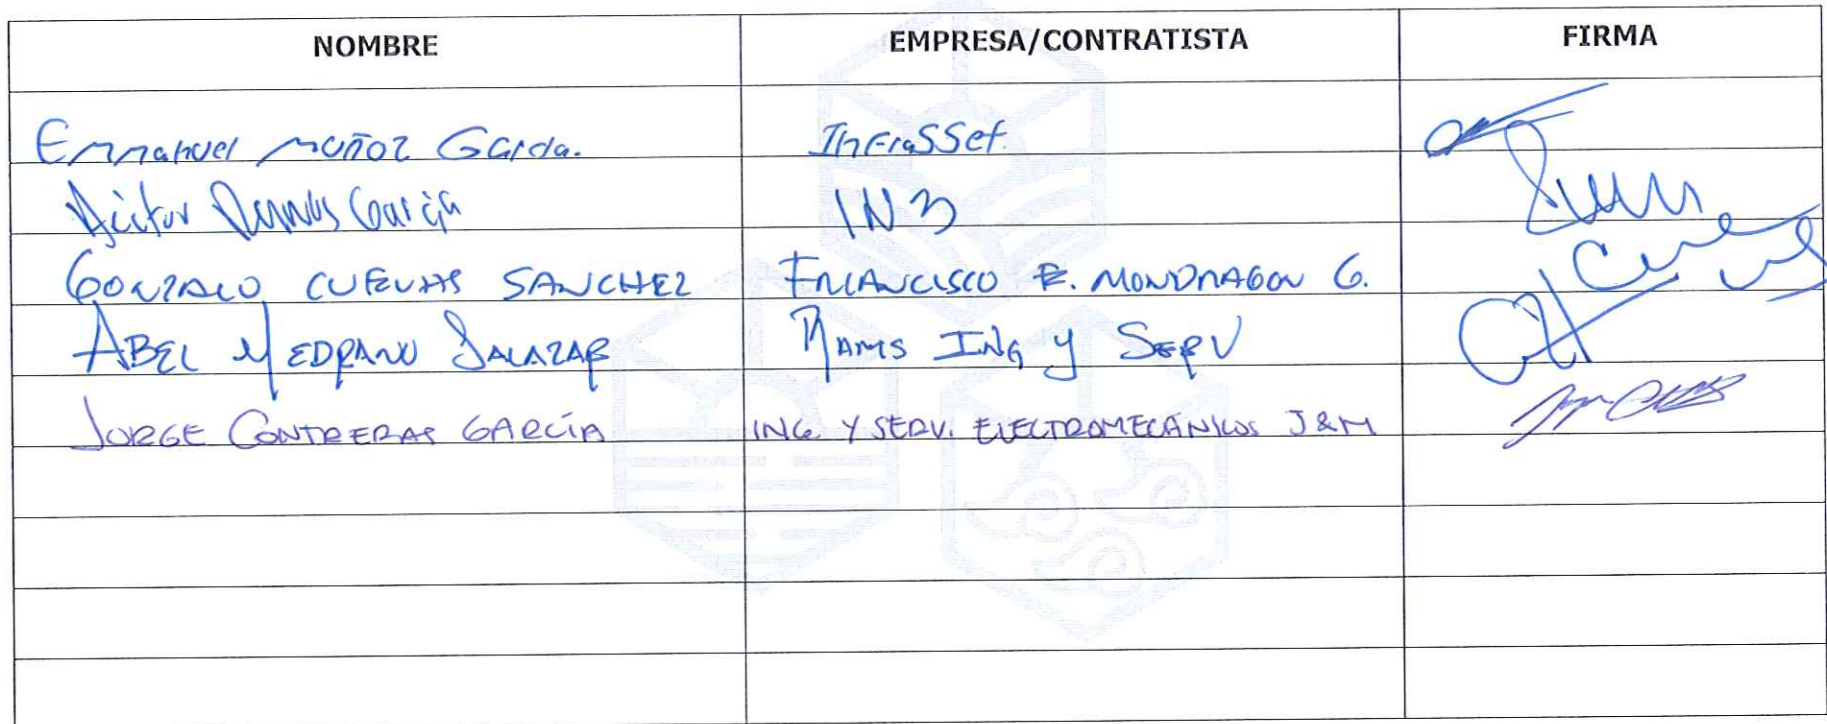 NOMBRE EMPRESA/CONTRATISTA FIRMA
Emmanuel MUÑOZ García. InFraSSet.
García IN3
GONZALO CUEVAS SANCHEZ FRANCISCO E. MONDRAGON G.
ABEL MEDRANO SALAZAR RAMS ING y SERV
JORGE CONTRERAS GARCÍA ING. Y SERV. ELECTROMECÁNICOS J&M